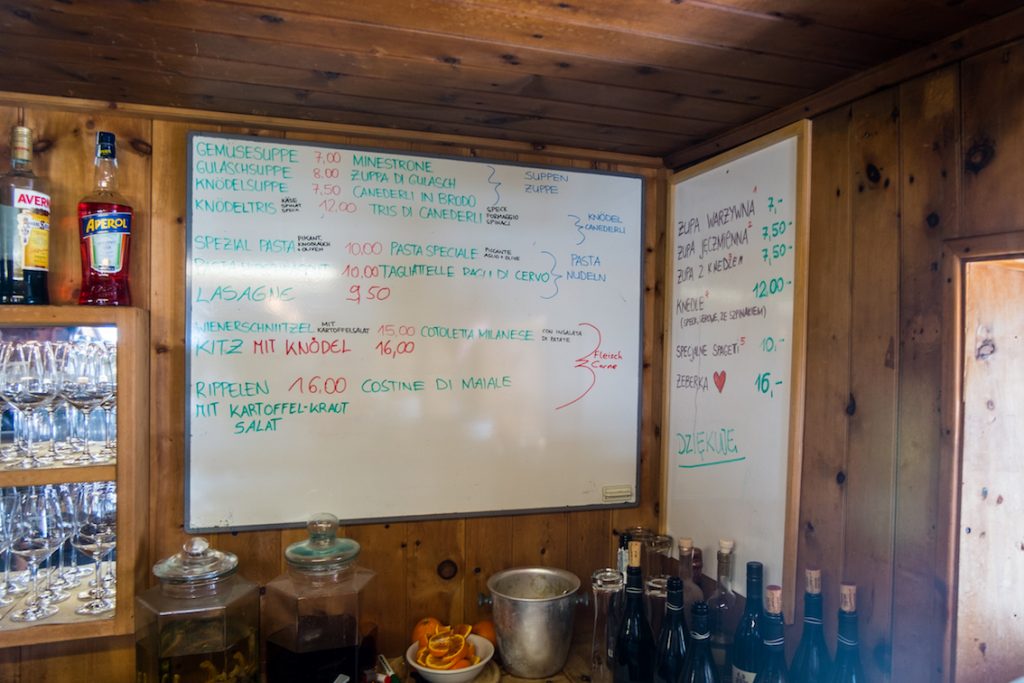 AVERN
APEROL
GEMÜSESUPPE 7,00 MINESTRONE
GULASCHSUPPE 8.00 ZUPPA DI GULASCH
KNÖDELSUPPE 7,50 CANEDERLI IN BRODO
SUPPEN
ZUPPE
KNÖDELTRIS KÄSE SPINAT SPECK 12,00 TRIS DI CANEDERLI SPECK FORMAGGIO SPINACI
KNÖDEL
CANEDERLI
SPEZIAL PASTA PIKANT, KNOBLAUCH + OLIVEN 10,00 PASTA SPECIALE PICCANTE AGLIO + OLIVE
10,00 TAGLIATELLE RAGU DI CERVO
PASTA
NUDELN
LASAGNE 9,50
WIENERSCHNITZEL MIT KARTOFFELSALAT 15,00 COTOLETTA MILANESE CON INSALATA DI PATATE
KITZ MIT KNÖDEL 16,00
Fleisch
Carne
RIPPELEN 16.00 COSTINE DI MAIALE
MIT KARTOFFEL-KRAUT
SALAT
ZUPA WARZYWNA 7,-
ZUPA JĘCZMIÓNNA 7,50-
ZUPA Z KNEDLEM 7,50-
KNEDLE 12,00-
(SPECK, SEROWE, ZE SZPINAKIEM)
SPECJALNE SPAGETI 10,-
ŻEBERKA ♥ 16,-
DZIĘKUJĘ